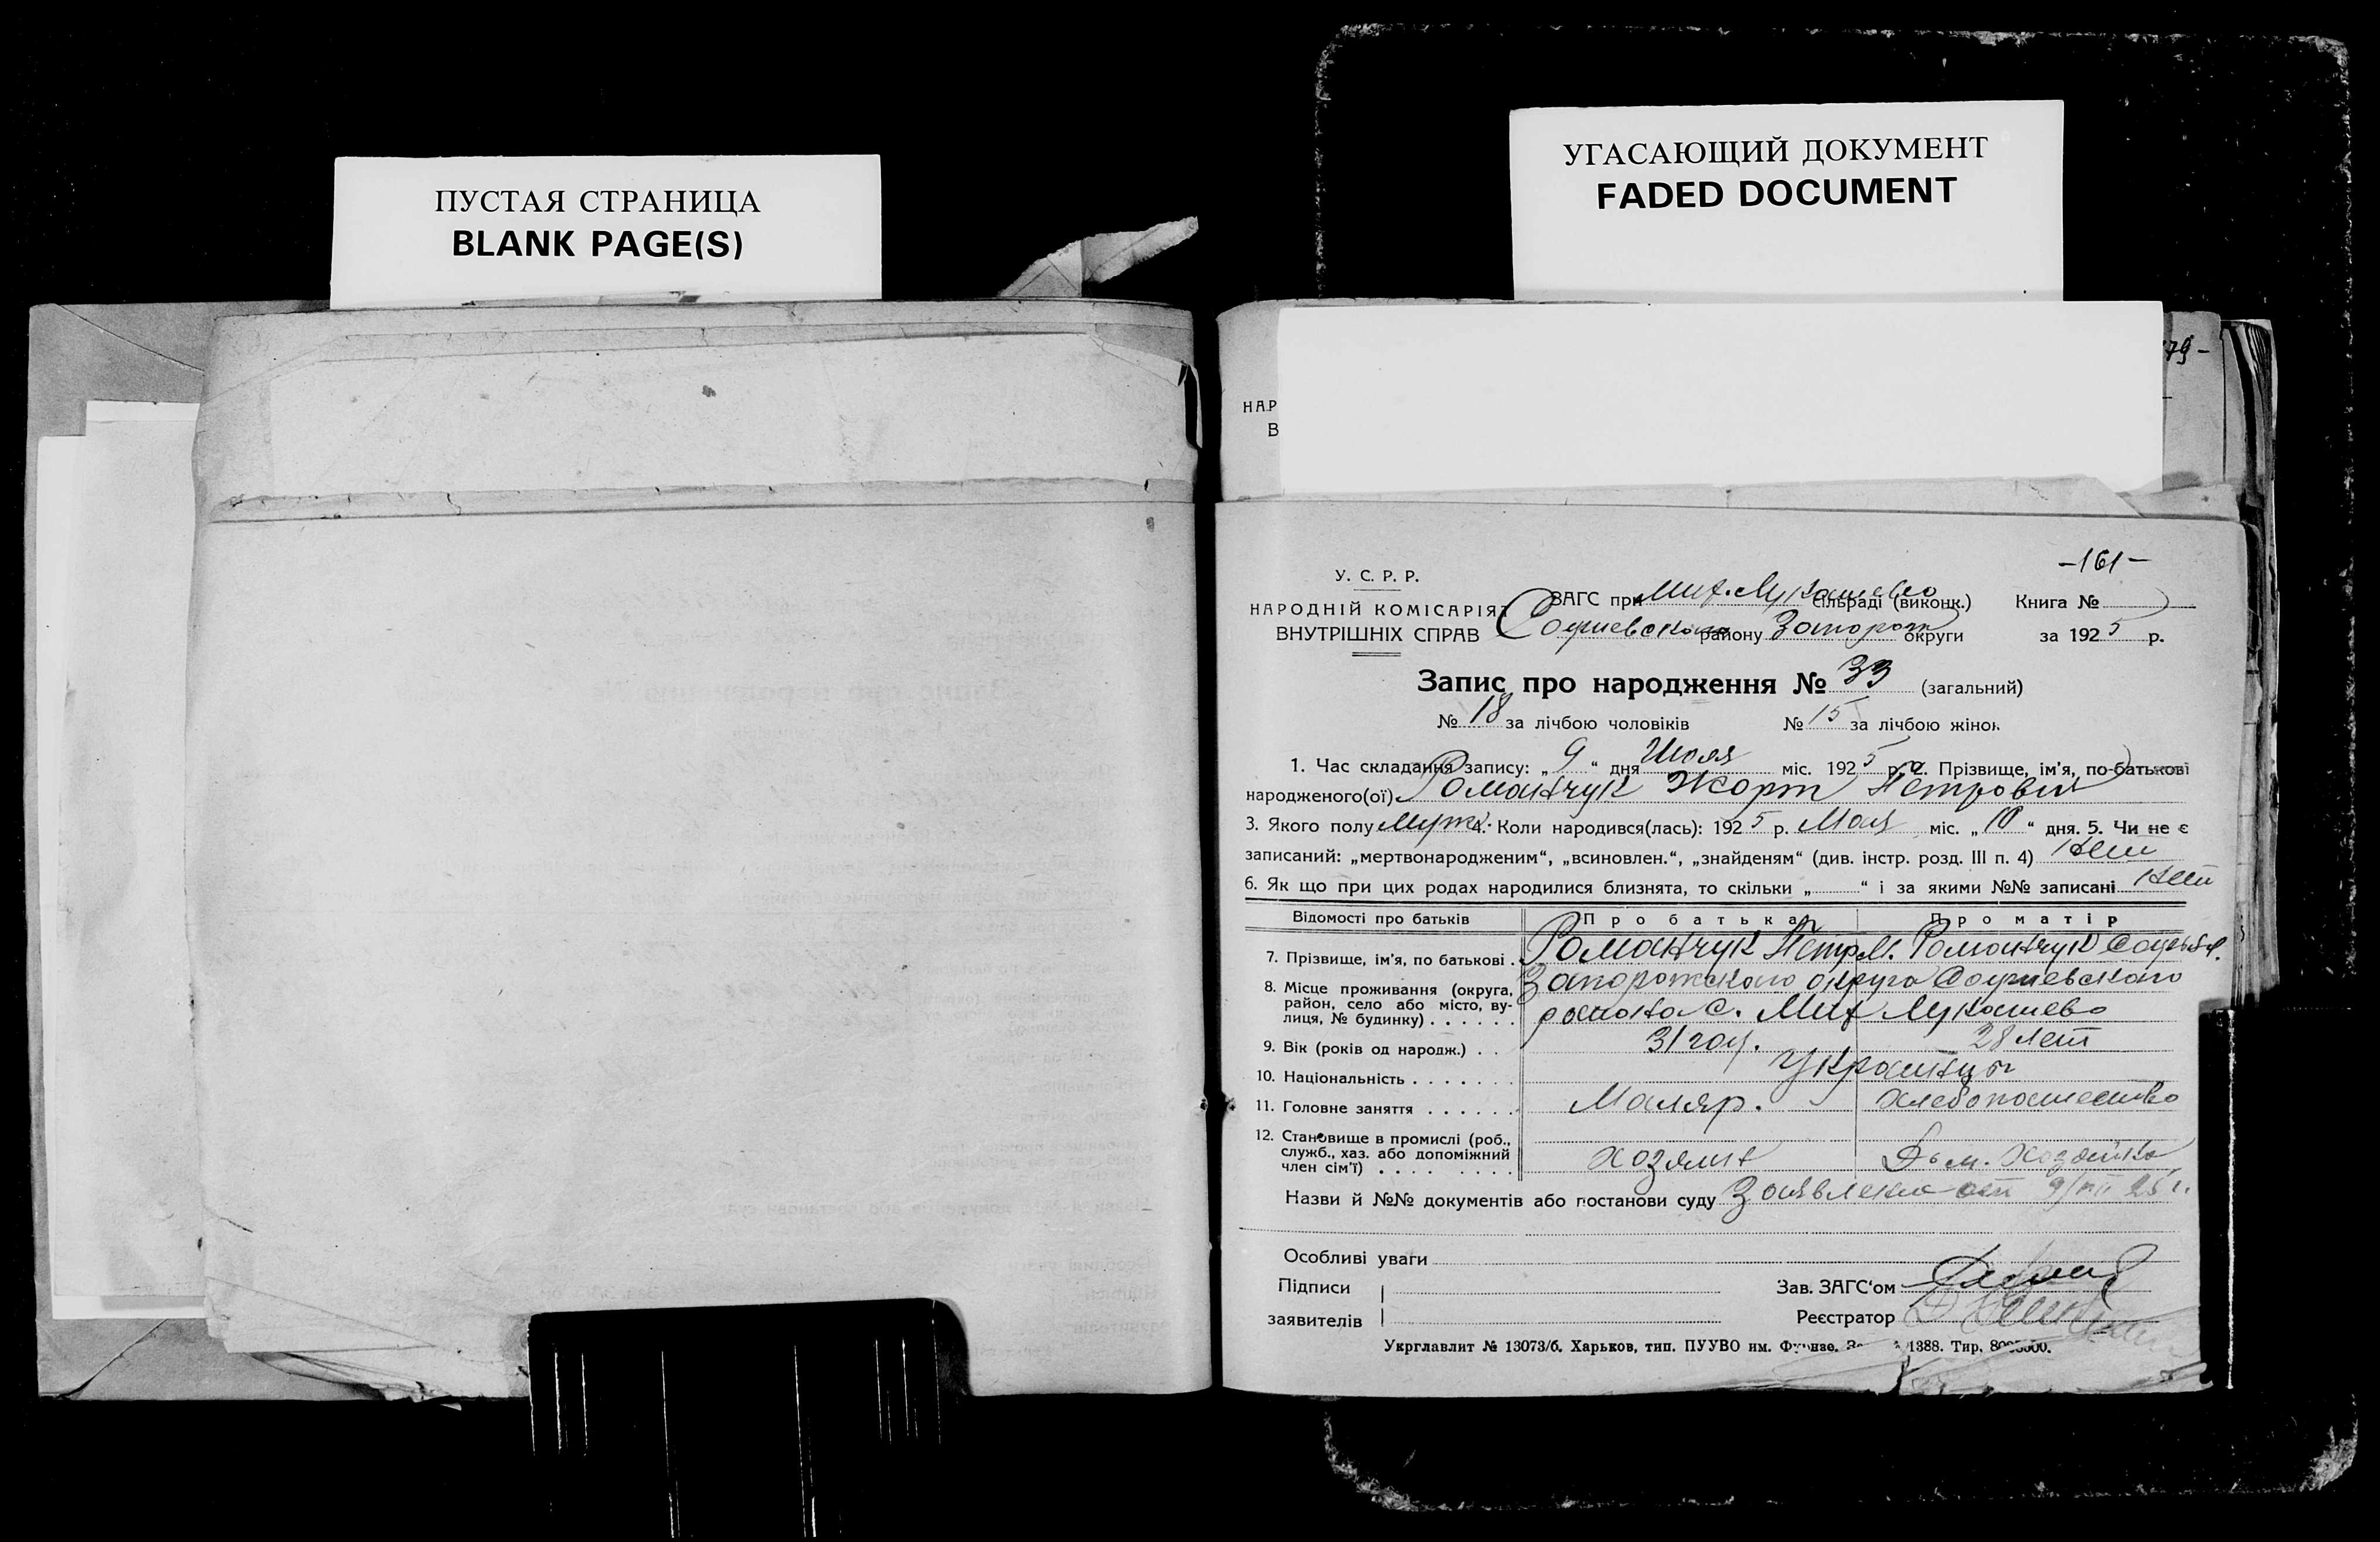 ПУСТАЯ СТРАНИЦА
BLANK PAGE(S)
УГАСАЮЩИЙ ДОКУМЕНТ
FADED DOCUMENT
79-
НАР
В
-161-
У. С. Р. Р.
НАРОДНІЙ КОМІСАРІЯТ
ВНУТРІШНІХ СПРАВ
ЗАГС при Мих. Лукашево сільраді (виконк.)
Софиевского району Запорож округи
Книга №
за 1925 р.
Запис про народження № 33 (загальний)
№ 18 за лічбою чоловіків № 15 за лічбою жінок
1. Час складання запису: „9“ дня Июля міс. 1925 р. 2. Прізвище, ім'я, по-батькові
народженого(ої) Романчук Жорж Петрович
3. Якого полу Муж. 4. Коли народився(лась): 1925 р. Мая міс. „10“ дня. 5. Чи не є
записаний: „мертвонародженим“, „всиновлен.“, „знайденям“ (див. інстр. розд. III п. 4) Нет
6. Як що при цих родах народилися близнята, то скільки „ “ і за якими №№ записані Нет
Відомості про батьків Про батька Про матір
7. Прізвище, ім'я, по батькові . Романчук Петр М. Романчук
8. Місце проживання (округа, район, село або місто, вулиця, № будинку) . . . . . . Запорожского округа Софиевского
района с. Мих Лукашево
9. Вік (років од народж.) . . 31 год. 28 лет
10. Національність . . . . . . . Украинцы
11. Головне заняття . . . . . . Маляр. Хлебопашество
12. Становище в промислі (роб., служб., хаз. або допоміжний член сім'ї) . . . . . . . . хозяин Дом. Хозяйка
Назви й №№ документів або постанови суду Заявление от 9/VII 25 г.
Особливі уваги
Підписи
заявителів
Зав. ЗАГС'ом
Реєстратор
Укрглавлит № 13073/б. Харьков, тип. ПУУВО им. Фрунзе. 1388. Тир.